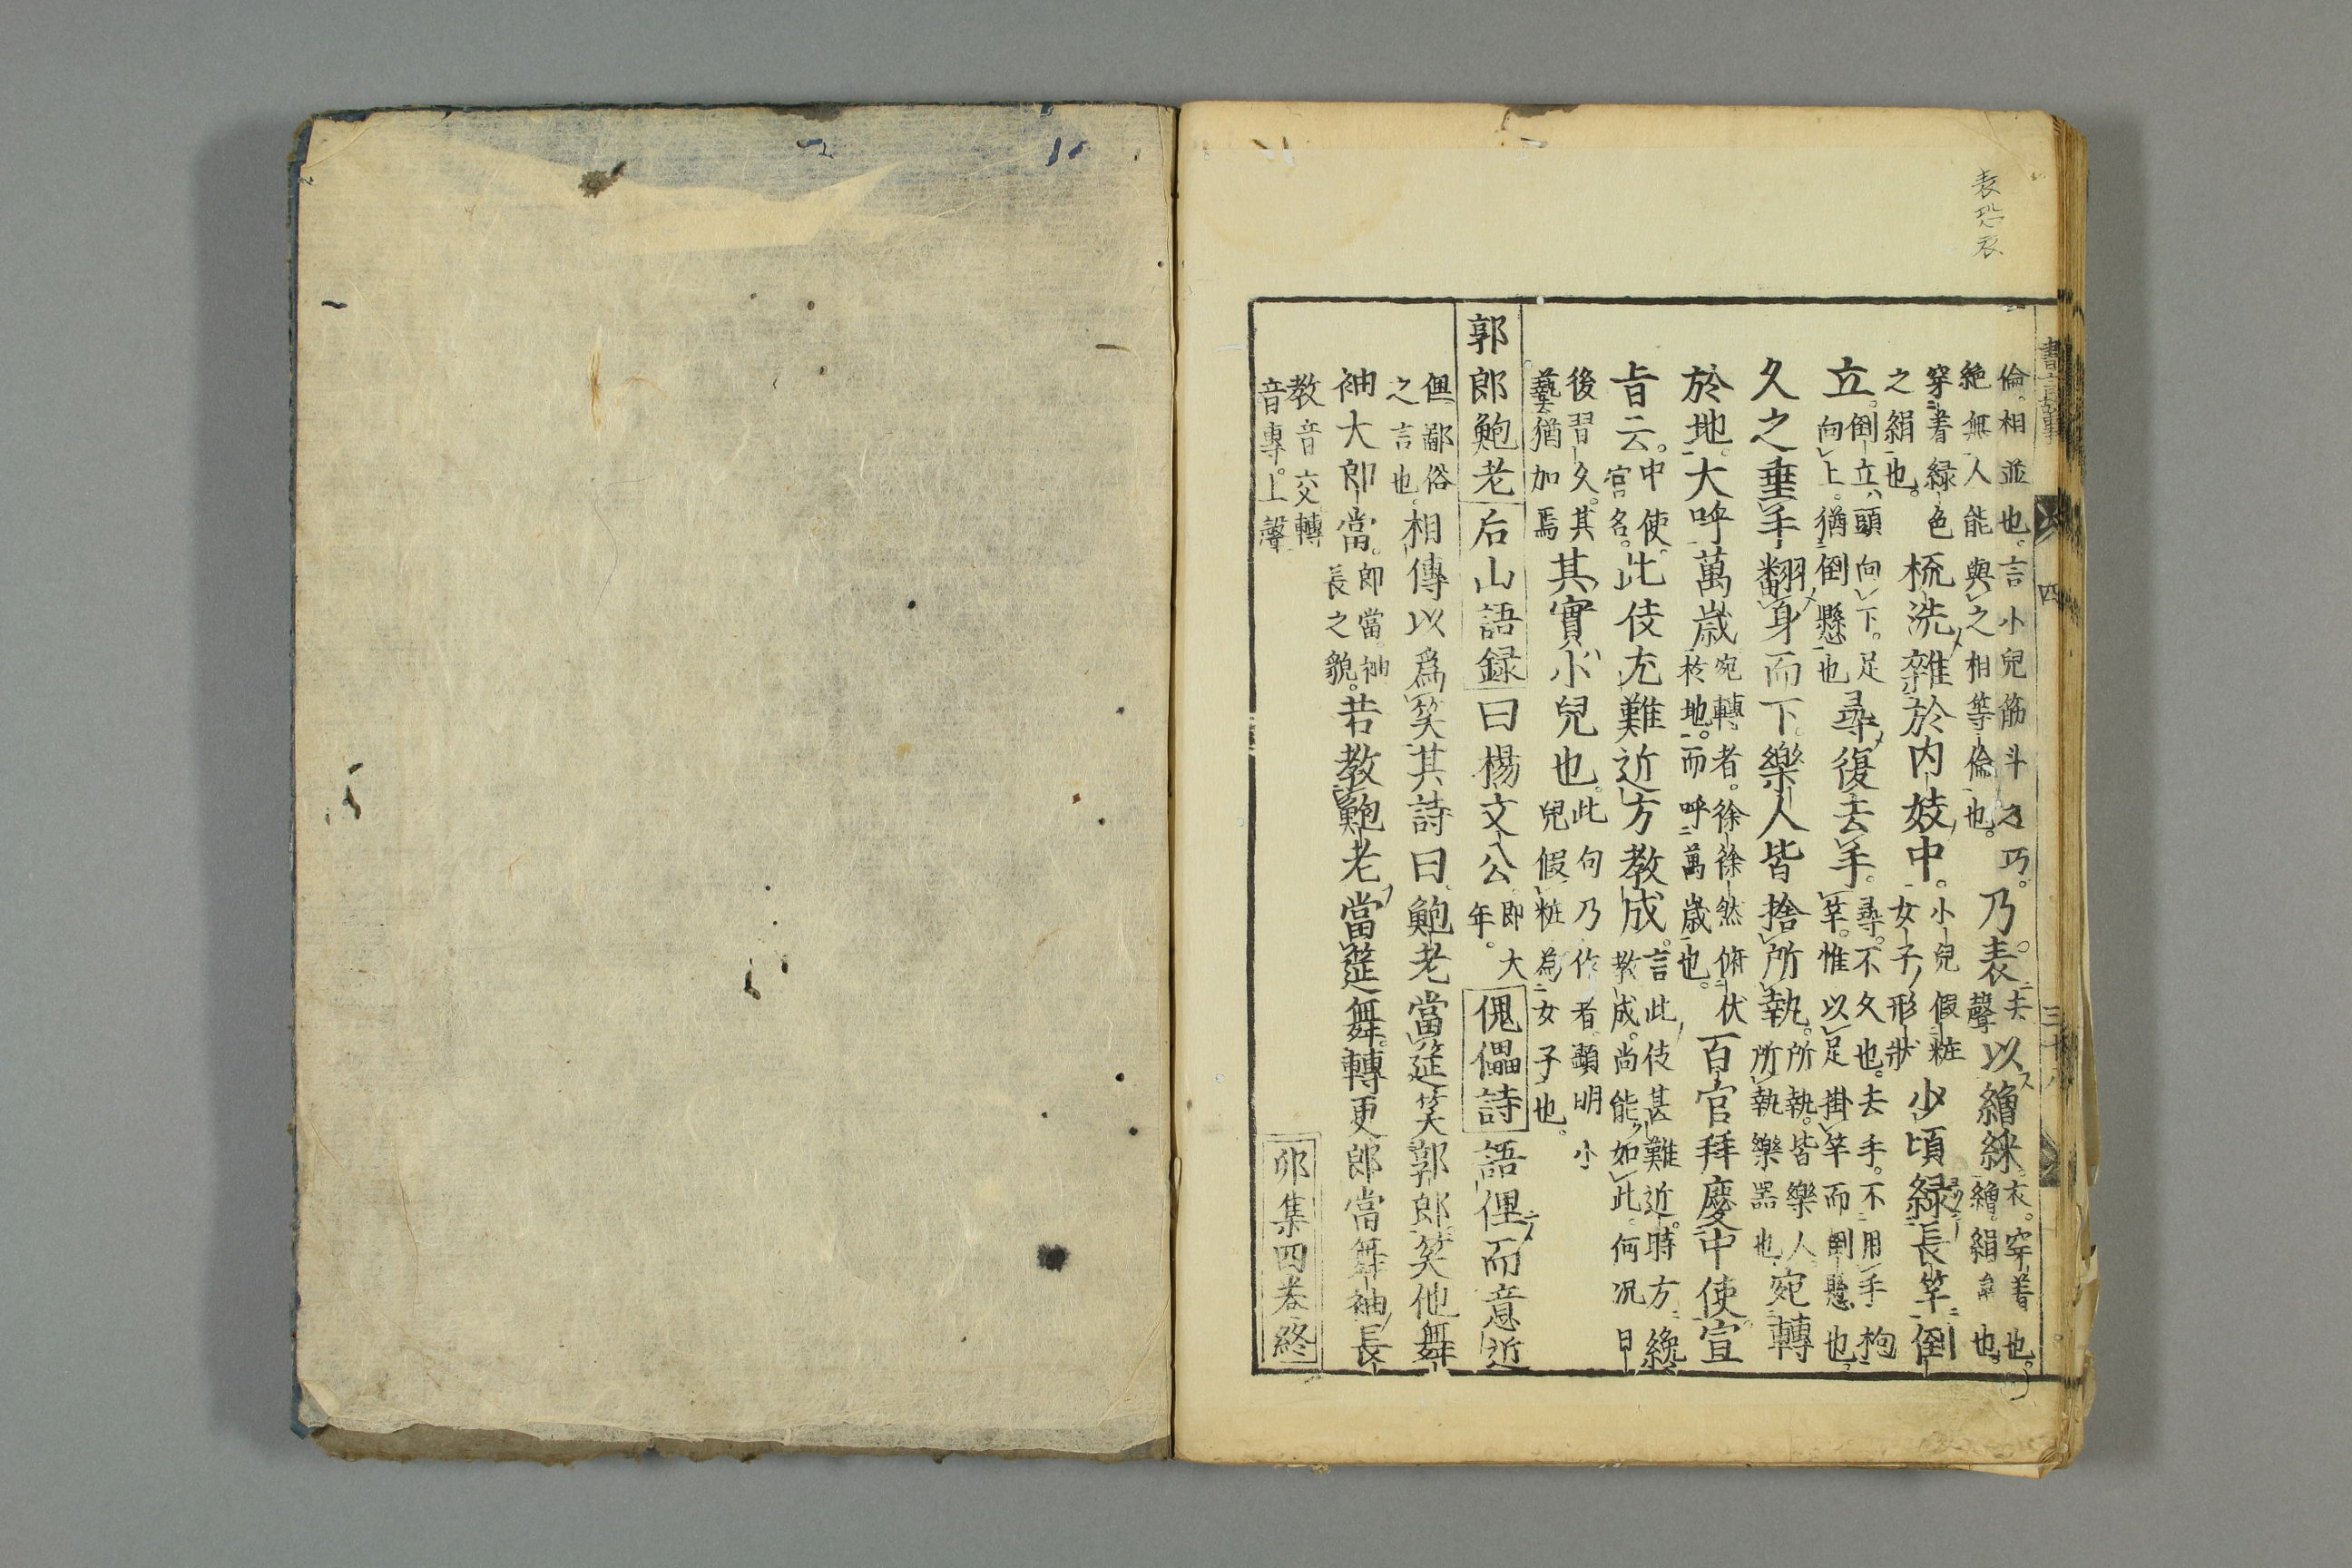 表恐衣
書言故事 四 三十八
倫。相並也。言小兒筋斗之巧。絶無人能與之相等倫也。乃表。去聲以繒綵。衣。穿着也。繒。絹帛也。
穿着緑色之絹也。梳洗雜於内妓中。小兒假粧女子形状少頃緑長竿倒
立。倒立頭向下。足向上。猶倒懸也尋復去手。尋。不久也。去手。不用手拘竿。惟以足掛竿而倒懸也。
久之垂手翻身而下。樂人皆捨所執。所執。皆樂人所執樂器也宛轉
於地。大呼萬歳宛轉者。徐徐然俯伏於地。而呼萬歳也。百官拜慶中使宣
旨云。中使。官名。此伎尤難近方教成。言此伎甚難近。時方纔教成。尚能如此。何况日
後習久。其藝猶加焉其實小兒也。此句乃作者顯明小兒假粧為女子也。
郭郎鮑老 后山語録曰楊文公。即大年。傀儡詩語俚而意近
俚鄙俗之言也。相傳以爲笑其詩曰。鮑老當筵笑郭郎。笑他舞
袖大郎當。郎當。袖長之貌。若教鮑老當筵舞。轉更郎當舞袖長
教音交轉音專。上聲
卯集四巻終